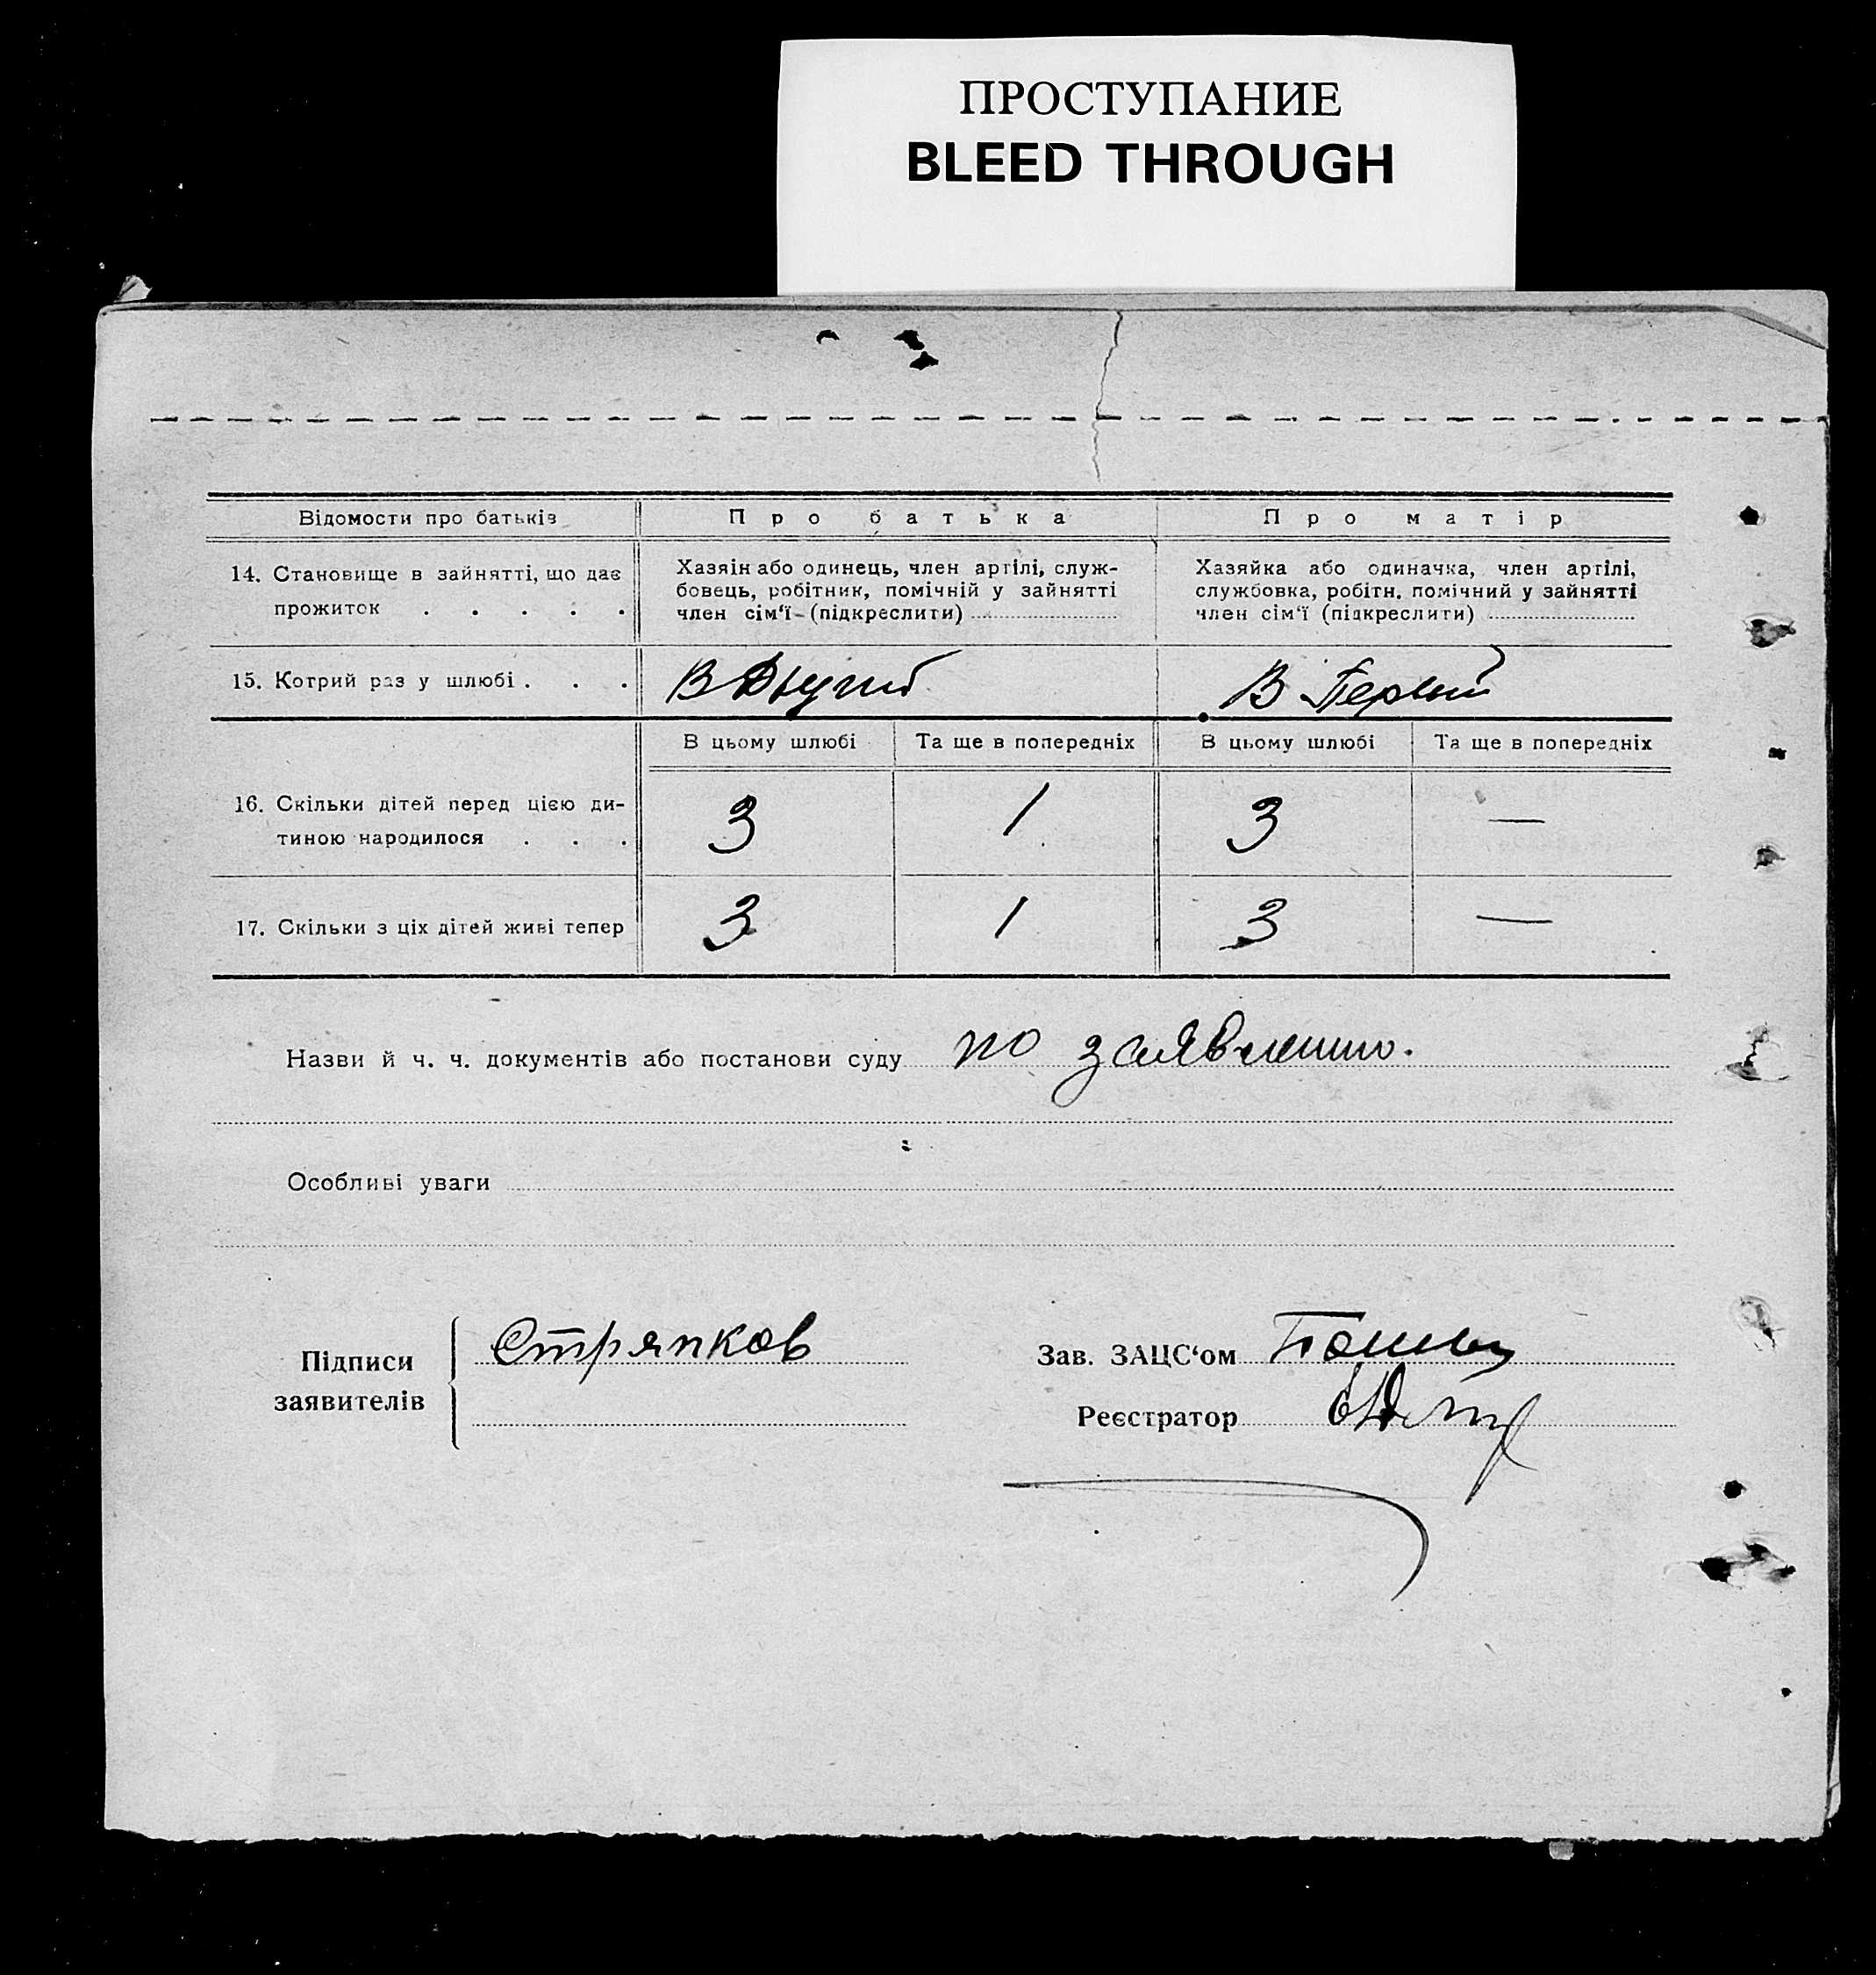 ПРОСТУПАНИЕ
BLEED THROUGH
Відомости про батьків
Про батька
Про матір
14. Становище в зайнятті, що дає
прожиток . . . . .
Хазяін або одинець, член аргілі, служ-
бовець, робітник, помічній у зайнятті
член сім‘ї (підкреслити)
Хазяйка або одиначка, член аргілі,
службовка, робітн. помічний у зайнятті
член сім‘ї (підкреслити)
15. Котрий раз у шлюбі . . .
В Другий
В Первий
В цьому шлюбі
Та ще в попередніх
В цьому шлюбі
Та ще в попередніх
16. Скільки дітей перед цією ди-
тиною народилося . . .
3
1
3
—
17. Скільки з ціх дітей живі тепер
3
1
3
—
Назви й ч. ч. документів або постанови суду по заявлению.
Особливі уваги
Підписи
заявителів
Стряпков
Зав. ЗАЦС‘ом
Реєстратор